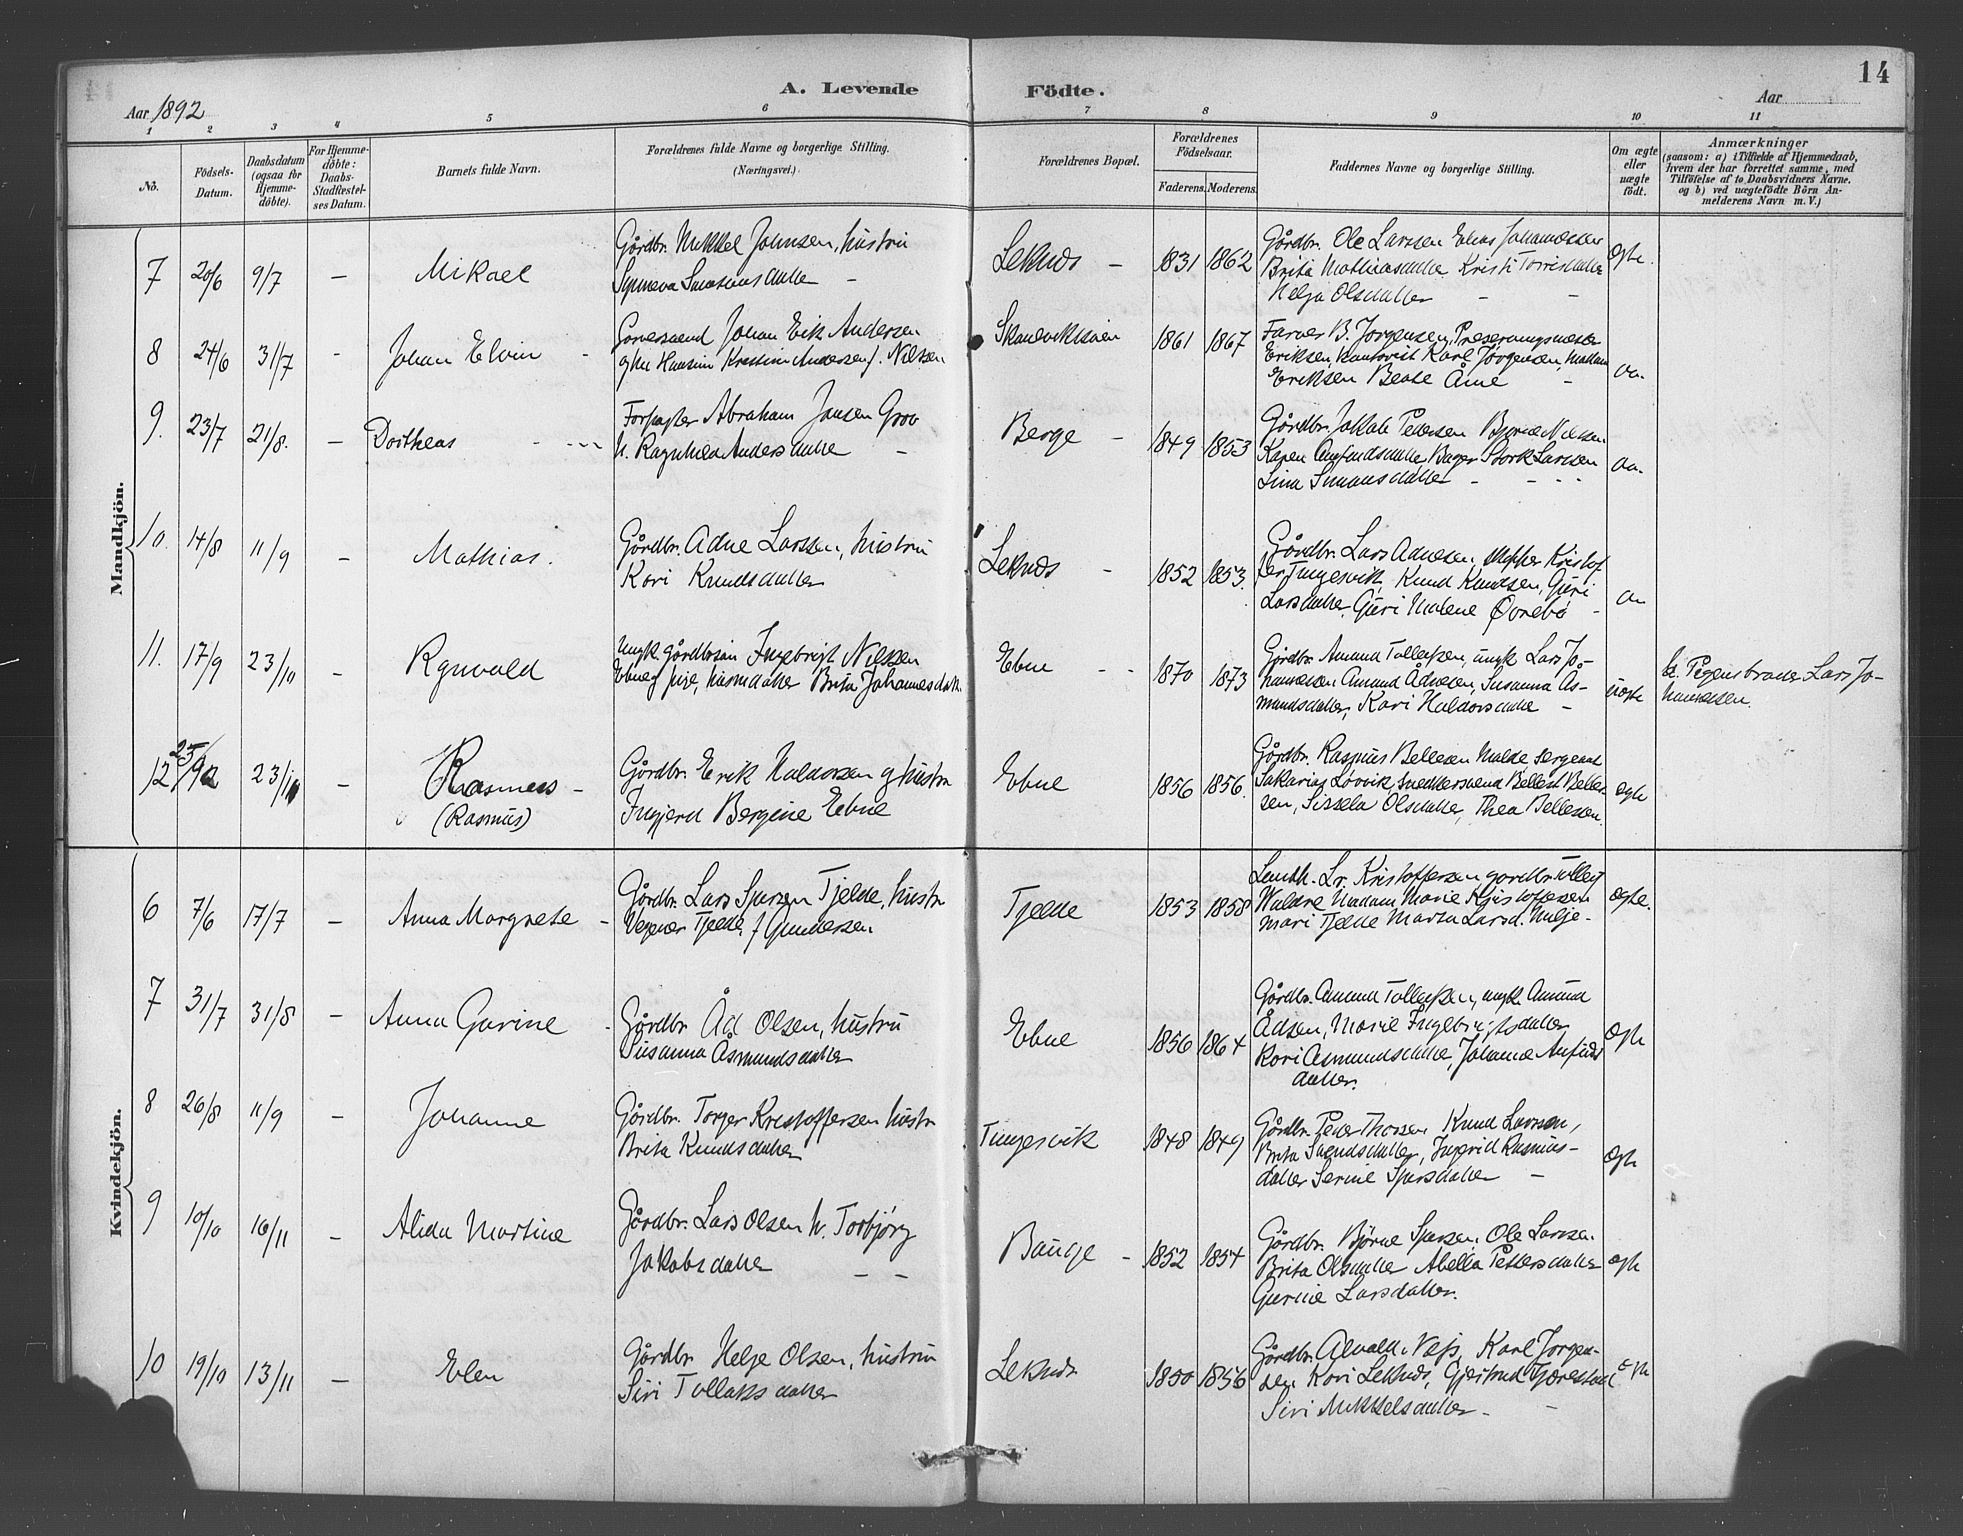 14
A. Levende Födte.
Aar 1892
Aar
1 2 3 4 5 6 7 8 9 10 11
No.
Födsels-
Datum.
Daabsdatum
(ogsaa for
Hjemme-
döbte).
For Hjemme-
döbte:
Daabs-
Stadfæstel-
ses Datum.
Barnets fulde Navn.
Forældrenes fulde Navne og borgerlige Stilling.
(Næringsvei.)
Forældrenes Bopæl.
Forældrenes
Födselsaar.
Faderens. Moderens.
Faddernes Navne og borgerlige Stilling.
Om ægte
eller
uægte
födt.
Anmærkninger
(saasom: a) i Tilfælde af Hjemmedaab,
hvem der har forrettet samme, med
Tilföielse af to Daabsvidners Navne.
og b) ved uægtefödte Börn An-
melderens Navn m. V.)
Mandkjön.
7 20/6 9/7 — Mikael
Gårdbr. Mikkel Johnsen, hustru
Synneva Samsonsdatter —
Leknes — 1831 1862
Gårdbr. Ole Larsen Elias Johannessen
Brita Mathiasdatter Kristi Torrisdatter
Helga Olsdatter — —
Ægte.
8 24/6 31/7 - Johan Elvin -
Johan Erik Andersen
Kristine Andersen f. Nilsen
1861 1867
Farver B. Jorgensen,
Eriksen, Karl Jørgensen, Madam
Eriksen Beate Åme -
do.
9. 23/7 21/8. — Dortheas
Forpagter Abraham Jansen Grov
H. Ragnhild Andersdatter —
Berge — 1849 1853
Gårdbr. Jakob Pedersen Bjørne Nilssen
Karen Larsen
Lina Simonsdatter - - -
do.
10. 14/8 11/9 — Mathias.
Gårdbr. Adne Larssen, hustru
Kari Knudsdatter
Leknes - 1852 1853.
Gårdbr. Lars Adnesen, Kristof
fer Tungesvik, Knud Knudsen, Guri
Larsdatter, Guri Malene Øvrebø -
do
11. 17/9 23/10 Rgnvald
Ungk. gårdbrsøn Ingebrigt Nilssen
Ebne og pige, husmdatter Brita Johannesdatt.
Ebne - - 1870 1873
Gårdbr. Amund Tollefsen, ungk Lars Jo-
hannesen Amund Ådnesen, Susanna As-
mundsdatter, Kari Haldorsdatter —
uægte
b. Pigens broder Lars Jo-
hannessen.
12 25/9 23/10 — Rasmus —
(Rasmus)
Gårdbr. Erik Haldorsen og hustru
Ingjerd Bergine Ebne
Ebne 1856 1856.
Gårdbr. Rasmus Bellesen Malde sergeant
Sakarias Løvvik, snedkersvend Bellest Belle-
sen, Sissela Olsdatter, Thea Bellesen.
ægte
Kvindekjön.
6 7/6 17/7 — Anna Margrete —
Gårdbr. Lars Sjursen Tjelde, hustru
Tjelde, f. Gundersen
Tjelde 1853 1858
Lensm. Lr. Kristoffersen gardbr. Tollef
Madam Marie Kristoffersen
Mari Tjelde Larsd.
ægte.
7 31/7 31/8 — Anna Gurine -
Gårdbr. Åd Olsen, hustru
Susanna Åsmundsdatter
Ebne 1856 1864
Gårdbr. Amund Tollefsen, ungk. Amund
Ådsen, Marie Ingebrigtsdatter,
Kari Asmundsdatter, Johanne Anfinds
datter.
Ægte
8 26/8 11/9 — Johanne
Gårdbr. Torger Kristoffersen hustru
Brita Knudsdatter
Tungesvik 1848 1849
Gårdbr. Peder Thorsen Knud Larssen,
Brita Svendsdatter, Ingerid Rasmus-
datter Serine Sjursdatter —
Ægte
9 10/10 16/11 — Alida Martine
Gårdbr. Lars Olsen h. Torbjørg
Jakobsdatter — —
Bauge - 1852 1854
Gårdbr. Børne Sjursen, Ole Larssen
Brita Olsdatter Abella Pettersdatter
Gurine Larsdatter.
ægte
10 19/10 13/11 — Elen
Gårdbr. Helge Olsen, hustru
Siri Tollaksdatter
Leknes 1850 1856
Gårdbr. Næss, Karl Jorgen-
sen Kari Leknes, Gjertrud Fjærestad
Siri Mikkelsdatter -